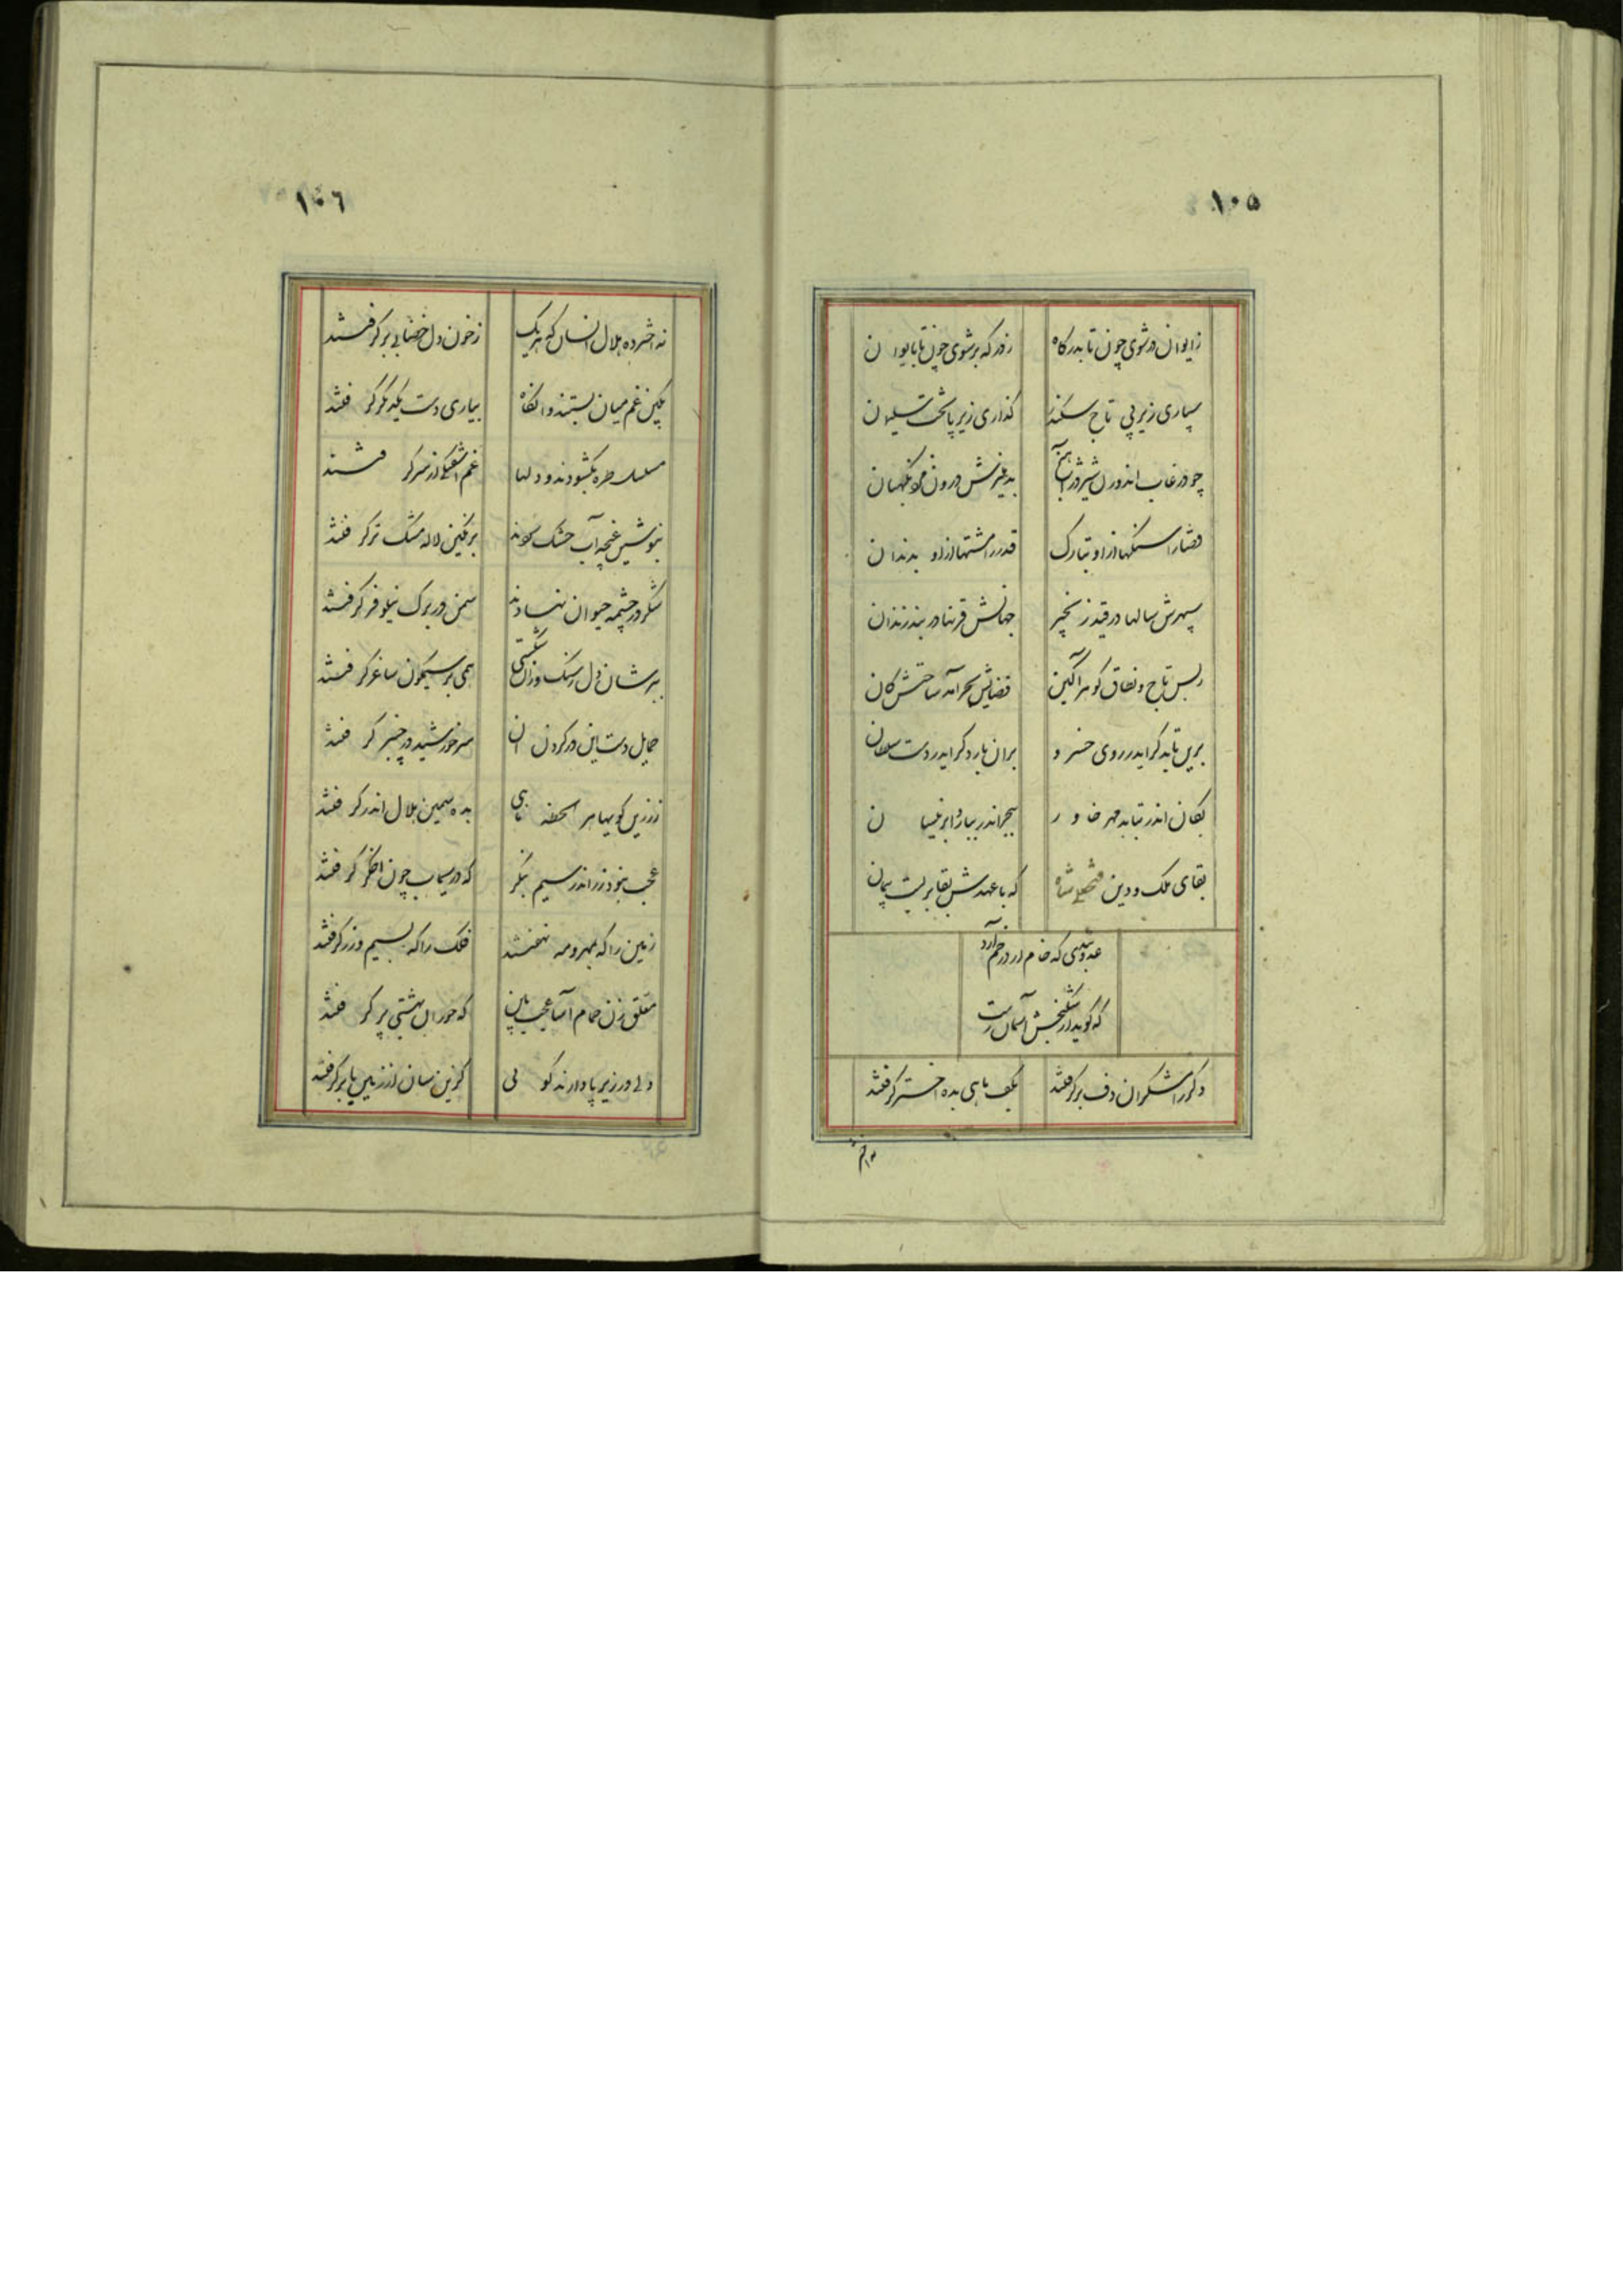 ۱۰۵
ز ایوان در شوی چون تا بدرگاه ز درگه بر شوی چون تا بایوان
سپاری زیر پی تاج سکندر گذاری زیر پا تخت سلیمان
چو در غاب اندرون شیر
قضا را سنگها از او بتارک قدر را مشتها از او بدندان
سپهرش سالها در قید زنجیر جهانش قرنها در بند زندان
ز بس تاج و نطاق گوهرآگین قضایش بحر آمد ساحتش کان
برین تابد گر ایدر روی خسرو بران بارد گر ایدر دست سلطان
بکان اندر نتابد مهر خاور ببحر اندر ببارد ابر نیسان
بقای ملک و دین فتحعلی شاه که با عهدش بقا بر بست پیمان
عدوی که خام در خم آرد
که گوید در شکنجش آسمان
دگر رامشگران دف بر گرفتند بکف ماهی بده اختر گرفتند
۱۰۶
ز خون دل خضابی بر گرفتند
میان بستند و آنگاه بیاری دست یکدیگر گرفتند
مسلسل طره بگشودند و دلها غم آشفتگی از سر گرفتند
بنوشین غنچه آب خشک برنگین لاله مشک تر گرفتند
شکر در چشمه حیوان نهادند سمن در برگ نیلوفر گرفتند
بر ایشان دل ز سنگ و زان شگفتی همی بر سیمگون ساغر گرفتند
حمایل دست این در گردن آن سر خورشید در چنبر گرفتند
ز زرین گویها هر لحظه ماهی بده سیمین هلال اندر گرفتند
عجب نبود زر اندر سیم بنگر که در سیماب چون اخگر گرفتند
زمین را گه بمهر و مه نهفتند فلک را گه بسیم و زر گرفتند
معلق زن حمام آسا عجب تا این که حوران بهشتی پر گرفتند
دلی در زیر پا دارند گوئی کزین سان از زمین پا بر گرفتند